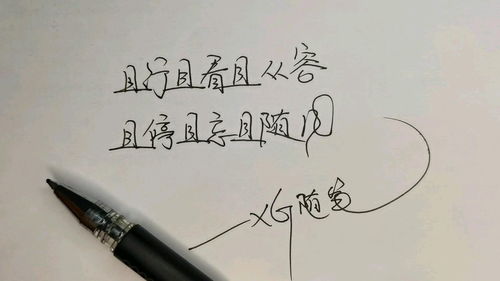 且行且看且从容
且停且忘且随风
XG随笔